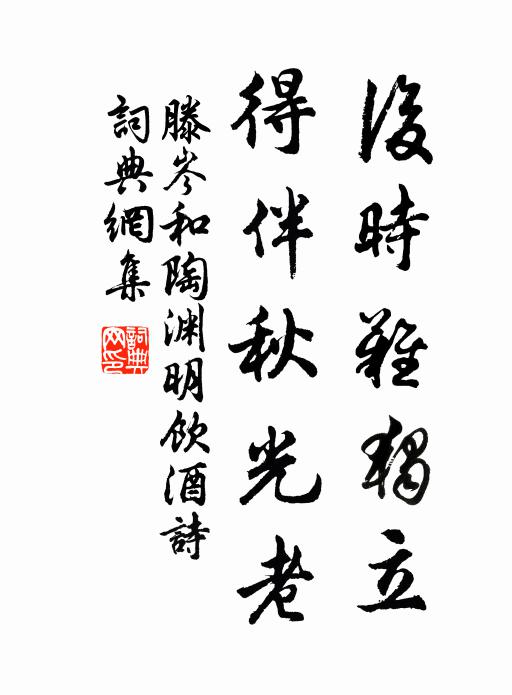 後時難獨立
得伴秋光老
滕岑和陶淵明飲酒詩
詞典網集
詞典
网印